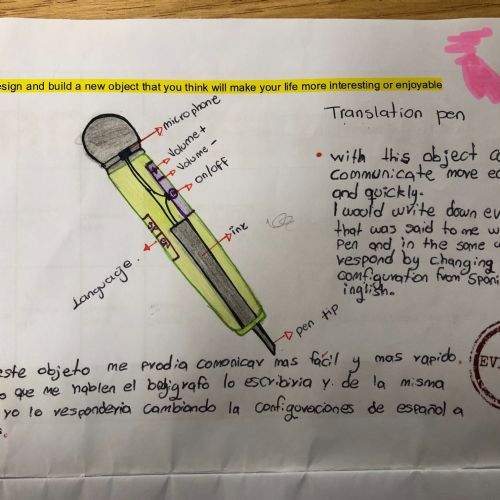 design and build a new object that you think will make your life more interesting or enjoyable
Translation pen
microphone
Volume+
Volume-
on/off
ink
Language.
pen tip
with this object
communicate more
and quickly.
I would write down
that was said to me
Pen and in the same
respond by changing
comfiguration from
inglish.
este objeto me prodia comonicar mas facil y mas rapido.
que me hablen el boligrafo lo escribiria y de la misma
yo lo responderia cambiando la configuraciones de español a